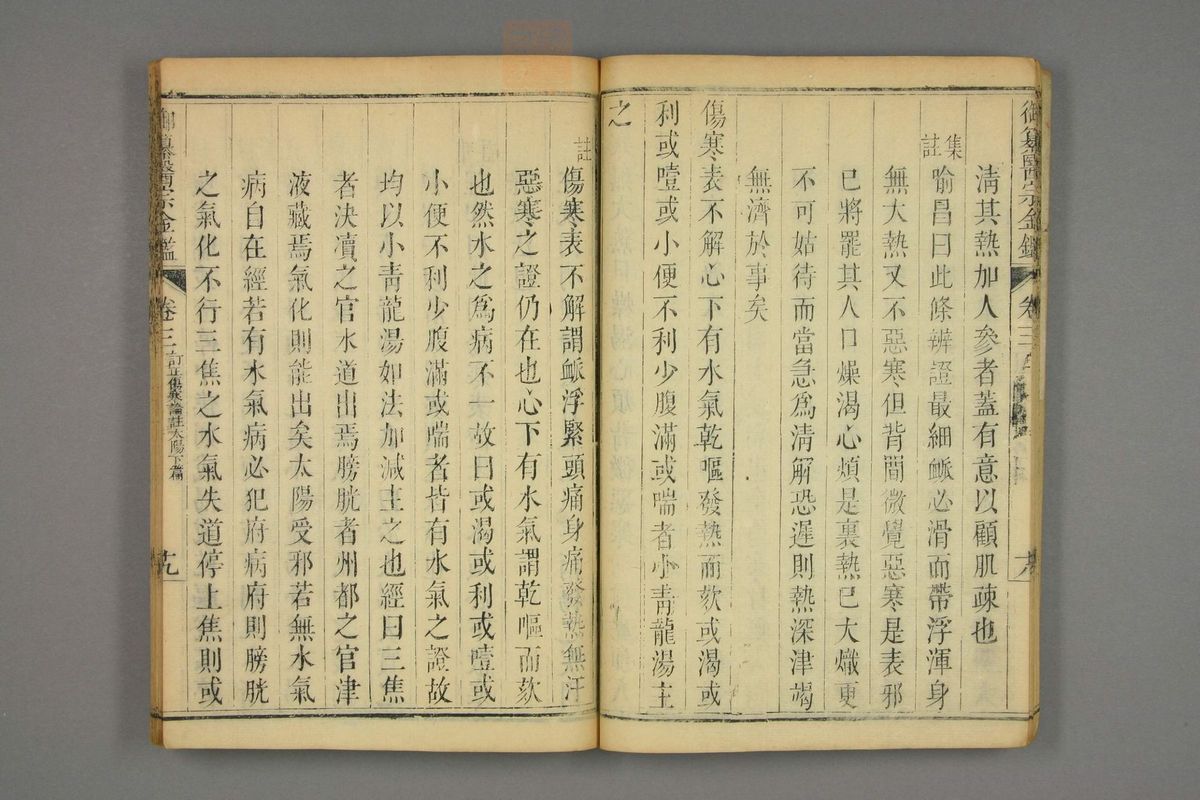 御纂醫宗金鑑 卷三
清其熱加人參者蓋有意以顧肌疎也
集註
喻昌曰此條辨證最細衇必滑而帶浮渾身
無大熱又不惡寒但背間微覺惡寒是表邪
已將罷其人口燥渴心煩是裏熱已大熾更
不可姑待而當急爲清解恐遲則熱深津竭
無濟於事矣
傷寒表不解心下有水氣乾嘔發熱而欬或渴或
利或噎或小便不利少腹滿或喘者小青龍湯主
之
註
傷寒表不解謂衇浮緊頭痛身痛發熱無汗
惡寒之證仍在也心下有水氣謂乾嘔而欬
也然水之爲病不一故曰或渴或利或噎或
小便不利少腹滿或喘者皆有水氣之證故
均以小青龍湯如法加減主之也經曰三焦
者決瀆之官水道出焉膀胱者州都之官津
液藏焉氣化則能出矣太陽受邪若無水氣
病自在經若有水氣病必犯府病府則膀胱
之氣化不行三焦之水氣失道停上焦則或
御纂醫宗金鑑 卷三 訂正傷寒論註太陽下篇